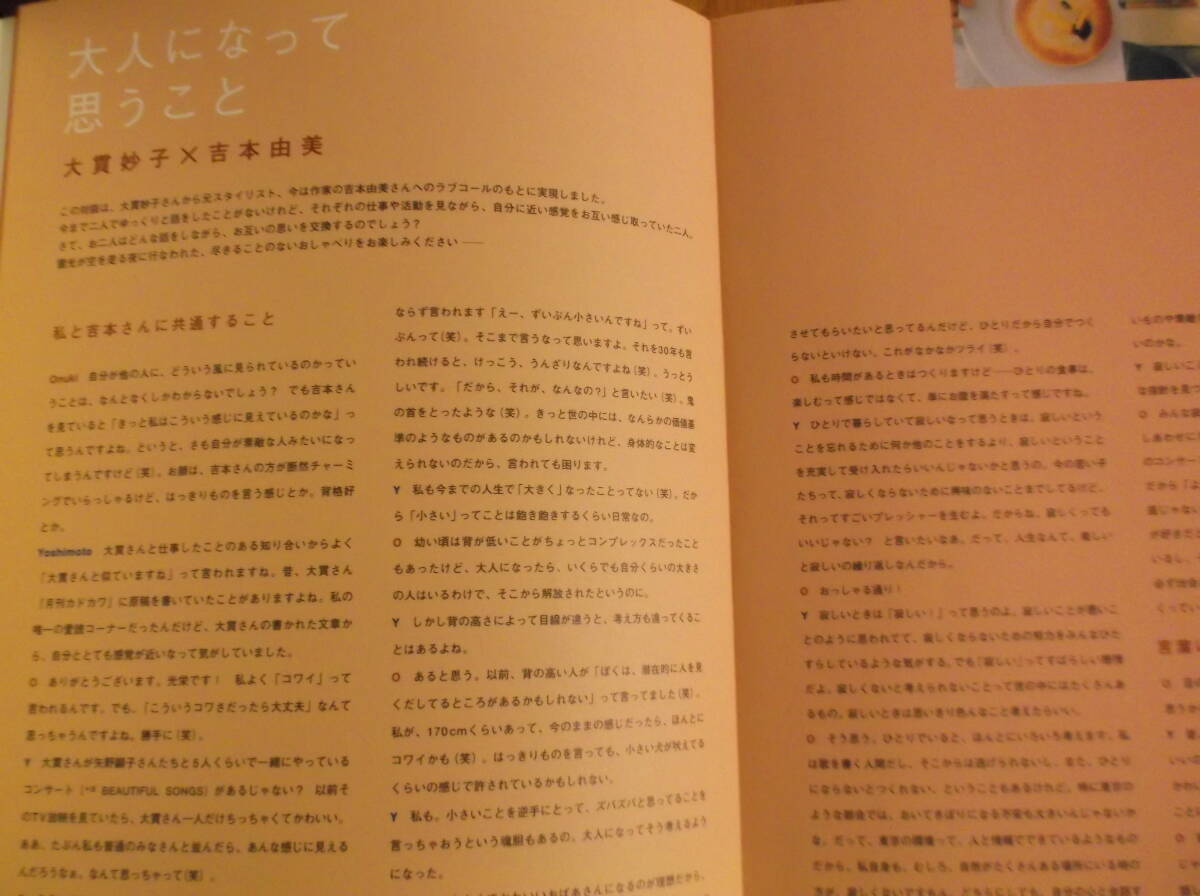 大人になって
思うこと
大貫妙子×吉本由美
この対談は、大貫妙子さんから元スタイリスト、今は作家の吉本由美さんへのラブコールのもとに実現しました。
今まで二人でゆっくりと話をしたことがないけれど、それぞれの仕事や活動を見ながら、自分に近い感覚をお互い感じ取っていた二人。
さて、お二人はどんな話をしながら、お互いの思いを交換するのでしょう?
雷光が空を走る夜に行なわれた、尽きることのないおしゃべりをお楽しみください――
私と吉本さんに共通すること
Onuki 自分が他の人に、どういう風に見られているのかってい
うことは、なんとなくしかわからないでしょう? でも吉本さん
を見ていると「きっと私はこういう感じに見えているのかな」っ
て思うんですよね。というと、さも自分が素敵な人みたいになっ
てしまうんですけど(笑)。お顔は、吉本さんの方が断然チャーミ
ングでいらっしゃるけど、はっきりものを言う感じとか。背格好
とか。
Yoshimoto 大貫さんと仕事したことのある知り合いからよく
「大貫さんと似ていますね」って言われますね。昔、大貫さん
『月刊カドカワ』に原稿を書いていたことがありますよね。私の
唯一の愛読コーナーだったんだけど、大貫さんの書かれた文章か
ら、自分ととても感覚が近いなって気がしていました。
O ありがとうございます。光栄です! 私よく「コワイ」って
言われるんです。でも、「こういうコワさだったら大丈夫」なんて
思っちゃうんですよね。勝手に(笑)。
Y 大貫さんが矢野顕子さんたちと5人くらいで一緒にやっている
コンサート BEAUTIFUL SONGS)があるじゃない? 以前そ
のTV放映を見ていたら、大貫さん一人だけちっちゃくてかわいい。
ああ、たぶん私も普通のみなさんと並んだら、あんな感じに見える
んだろうなぁ。なんて思っちゃって(笑)。
ならず言われます「えー、ずいぶん小さいんですね」って。ずい
ぶんって(笑)。そこまで言うなって思いますよ。それを30年も言
われ続けると、けっこう、うんざりなんですよね(笑)。うっとう
しいです。「だから、それが、なんなの?」と言いたい(笑)。鬼
の首をとったような(笑)。きっと世の中には、なんらかの価値基
準のようなものがあるのかもしれないけれど、身体的なことは変
えられないのだから、言われても困ります。
Y 私も今までの人生で「大きく」なったことってない(笑)。だか
ら「小さい」ってことは飽き飽きするくらい日常なの。
O 幼い頃は背が低いことがちょっとコンプレックスだったこと
もあったけど、大人になったら、いくらでも自分くらいの大きさ
の人はいるわけで、そこから解放されたというのに。
Y しかし背の高さによって目線が違うと、考え方も違ってくるこ
とはあるよね。
O あると思う。以前、背の高い人が「ぼくは、潜在的に人を見
くだしてるところがあるかもしれない」って言ってました(笑)。
私が、170cmくらいあって、今のままの感じだったら、ほんとに
コワイかも(笑)。はっきりものを言っても、小さい犬が吠えてる
くらいの感じで許されているかもしれない。
Y 私も。小さいことを逆手にとって、ズバズバと思ってることを
言っちゃおうという魂胆もあるの。大人になってそう考えるよう
になった。
させてもらいたいと思ってるんだけど、ひとりだから自分でつく
らないといけない。これがなかなかツライ(笑)。
O 私も時間があるときはつくりますけど――ひとりの食事は、
楽しむって感じではなくて、単にお腹を満たすって感じですね。
Y ひとりで暮らしていて寂しいなって思うときは、寂しいという
ことを忘れるために何か他のことをするより、寂しいということ
を充実して受け入れたらいいんじゃないかと思うの。今の若い子
たちって、寂しくならないために興味のないことまでしてるけど、
それってすごいプレッシャーを生むよ。だからね、寂しくっても
いいじゃない? と言いたいなあ。だって、人生なんて、楽しい
と寂しいの繰り返しなんだから。
O おっしゃる通り!
Y 寂しいときは「寂しい!」って思うのよ。寂しいことが悪いこ
とのように思われてて、寂しくならないための努力をみんなひた
すらしているような気がする。でも「寂しい」ってすばらしい感情
だよ。寂しくないと考えられないことって世の中にはたくさんあ
るもの。寂しいときは思いきり色んなこと考えたらいい。
O そう思う。ひとりでいると、ほんとにいろいろ考えます。私
は歌を書く人間だし、そこからは逃げられないし、また、ひとり
にならないとつくれない、ということもあるけれど。特に東京の
ような都会では、おいてきぼりになる不安も大きいんじゃないか
な。だって、東京の環境って、人と情報でできているようなもの
だから。私自身も、むしろ、自然がたくさんある場所にいる時の